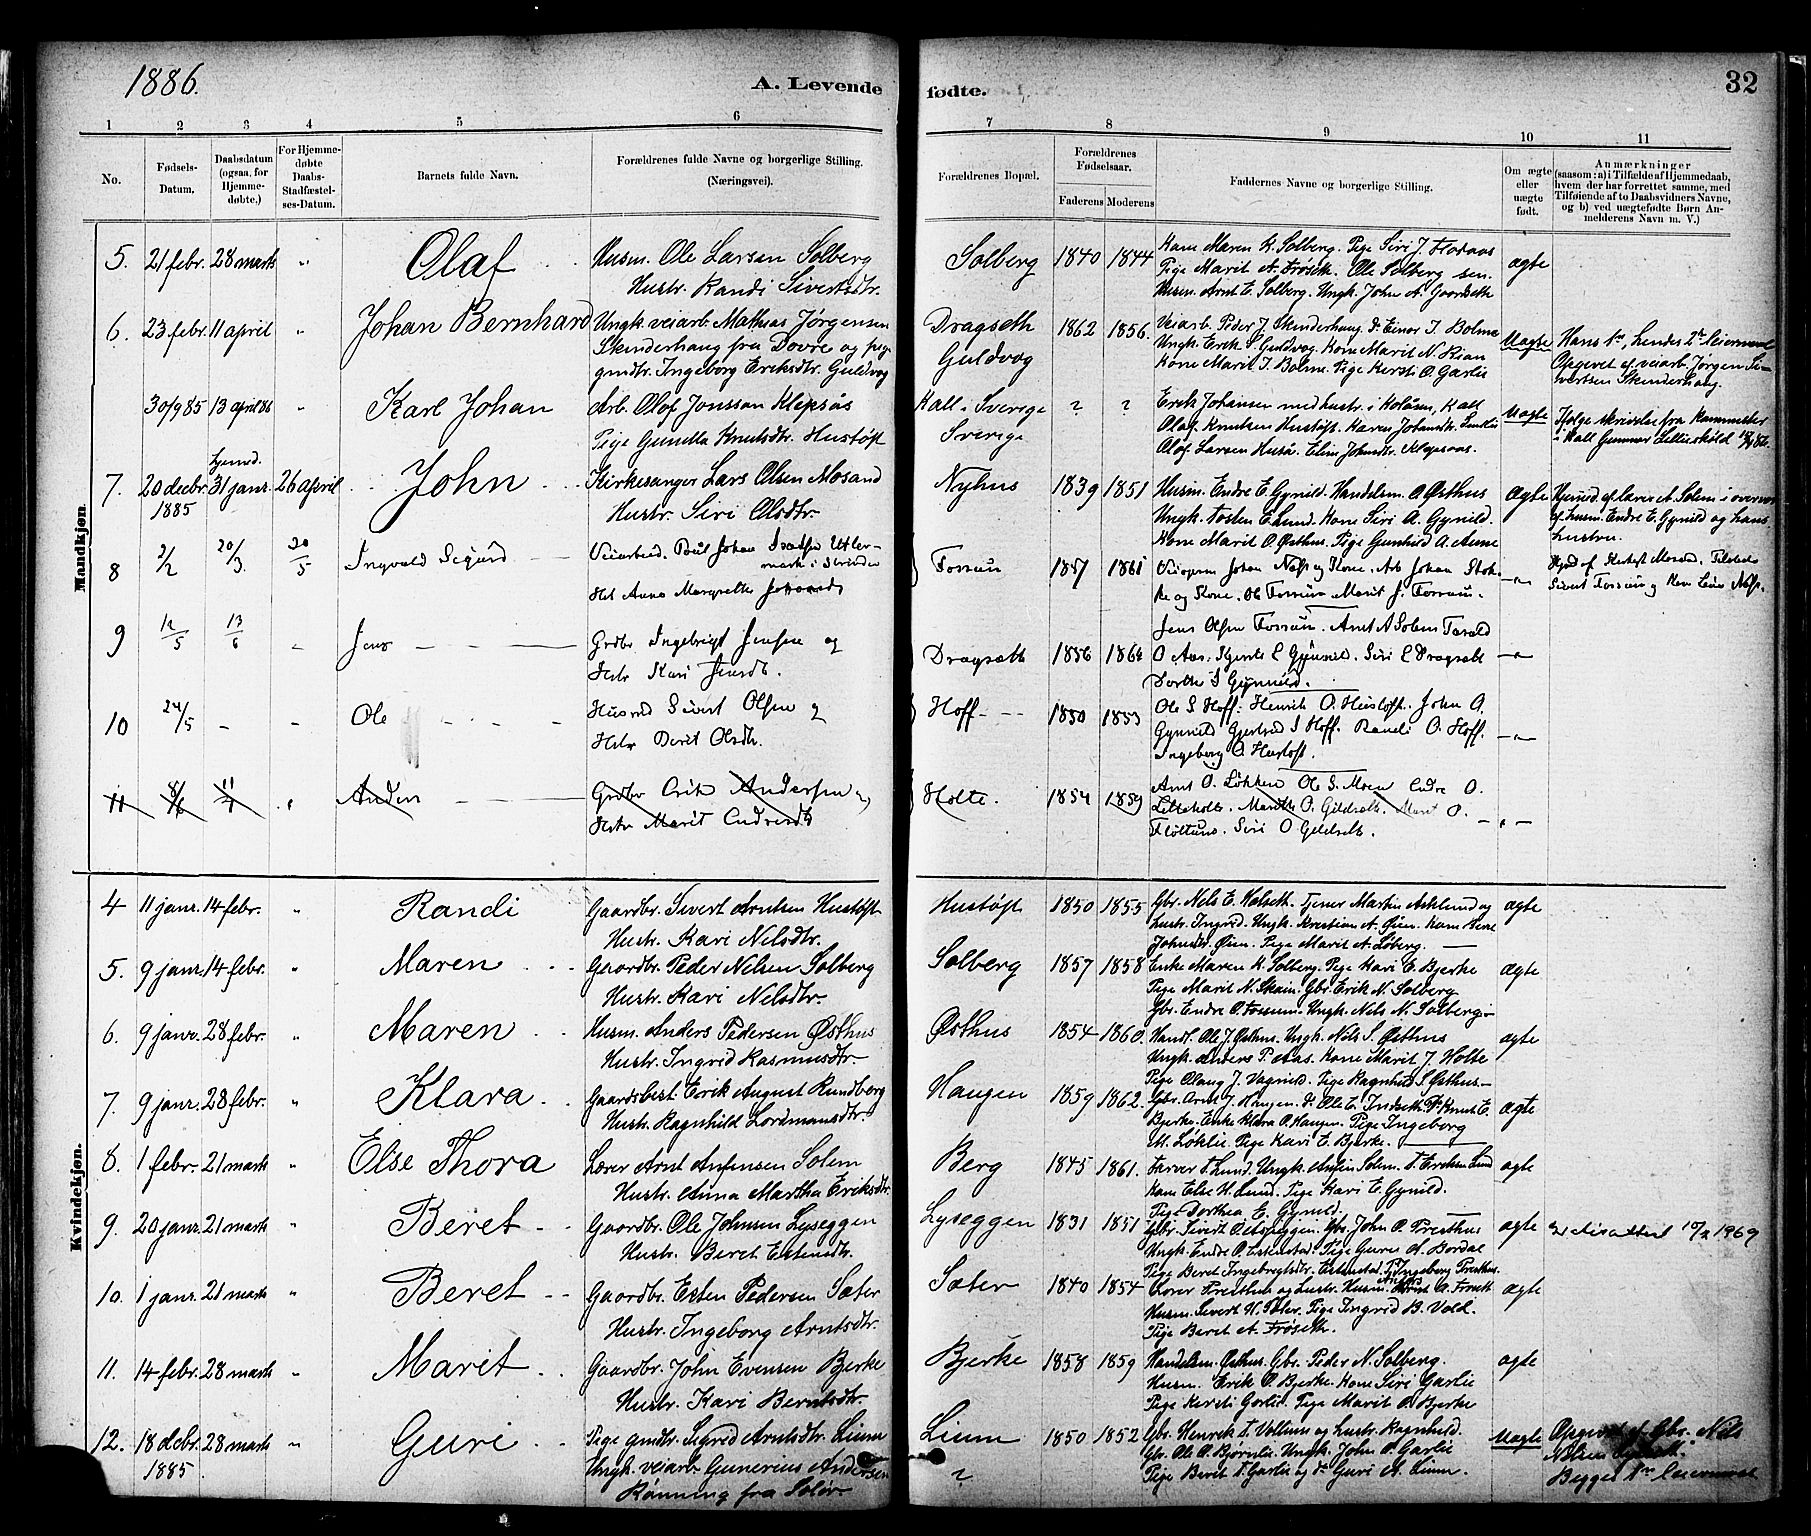 1886.
A. Levende
fødte.
32
1 2 3 4 5 6 7 8 9 10 11
No.
Fødsels-
Datum.
Daabsdatum
(ogsaa, for
Hjemme-
døbte.)
For Hjemme-
døbte
Daabs-
Stadfæstel-
ses-Datum.
Barnets fulde Navn.
Forældrenes fulde Navne og borgerlige Stilling.
(Næringsvei).
Forældrenes Bopæl.
Forældrenes
Fødselsaar.
Faderens Moderens
Faddernes Navne og borgerlige Stilling.
Om ægte
eller
uægte
født.
Anmærkninger
(saasom: a) i Tilfælde af Hjemmedaab,
hvem der har forrettet samme, med
Tilføiende af to Daabsvidners Navne,
og b) ved uægtefødte Børn An-
melderens Navn m. V.)
Mandkjøn.
5. 21 febr. 28 marts " Olaf Husm. Ole Larsen Solberg Solberg 1840 1844 Kone Maren K. Solberg. Pige Siri J. Flataas ægte
Hustr. Randi Sivertsdtr. Pige Marit A. Frøseth. Ole Solberg sen.
Husm. Arnt E. Solberg. Ungk. John A. Gaardseth
6. 23 febr. 11 april " Johan Bernhard Ungk. veiarb. Mathias Jørgensen Dragseth 1862 1856. Veiarb. Peder J. Skinderhaug. Do Einar I. Bolme Uægte Hans 1ste, hendes 2det Leiermaal
Skinderhaug fra Dovre og pige Guldvog Ungk. Erik S. Guldvog. Kone Marit N. Rian Opgivet af veiarb. Jørgen Si-
gmdtr. Ingeborg Eriksdtr. Guldvog Kone Marit I. Bolme. Pige Kersti O. Garlie vertsen Skinderhaug.
30/9 85 13 april 86 " Karl Johan Arb. Olof Jonsson Klepsås Kall i Sverige ? ? Erik Johansen med hustr. i Kolåsen, Kall Uægte Ifølge skrivelse fra
Pige Gunilla Knutsdtr. Hustøft Sverige Olaf Knutsen Hustøft. Karen Johansdtr.
i Kall Gunnar
Olof Larsen Huså. Elin Johnsdtr. Klepsaas.
7. 20 decbr. hjemd. 31 janr. 26 april John Kirkesanger Lars Olsen Mosand Nyhus 1839 1851 Husm. Endre E. Gynild. Handelsm. O. Østhus Ægte Hjemmed. af lærer A. Solem i overvær
1885 Hustr. Siri Olsdtr. Ungk. Tosten E. Lund. Kone Siri A. Gynild. af husm. Endre E. Gynild og hans
Kone Marit O. Østhus. Pige Gunhild A. Aune hustru.
8 2/2 20/3 30/5 Ingvald Sigurd Veiarbeid. Poul Johan
mark i Strinden Fossum 1857 1861 Johan Næss og Kone. Arb. Johan Stok- —"— Mosand.
Hst Anna Margrethe ke og Kone. Ole Fossum. Marit J. Fossum. Sivert Fossum og
9 12/5 13/6 " Jens Grdbr Ingebrigt Jensen og Jens Olsen Fossum. Arnt A Solem
Hstr Kari Jensdt. Dragsett 1856 1864 O Aas. E Gynnild. Siri E Dragsett —"—
Dorthe S Gynnild.
10 24/5 - - Ole Husmd Sivert Olsen og Hoff 1850 1853 Ole S Hoff. Henrik O. Hustoft. John O.
Hstr Berit Olsdtr. Gynnild Gjertrud S Hoff. Randi O. Hoff. —"—
Ingeberg O. Hustoft.
11 8/6 11/7 " Anders Grdbr Erik Andersen og Holte. 1854 1859 Arnt O. Løkken Ole S. Moen Endre O.
Hstr Marit Endresdt Lilleholt. Marit O. Gildset. Marit O. —"—
Fløttum. Siri O Gildset.
Kvindekjøn.
4 11 janr. 14 febr. " Randi Gaardbr. Sivert Arntsen Hustøft Hustøft 1850 1855 Gbr. Nils E. Halseth. Tjener Martin Asklund og ægte
Hustr. Kari Nilsdtr. hustr. Ingrid. Ungk. Kristian A. Øien. Kone
Johnsdtr. Øien. Pige Marit A. Løberg.
5. 9 janr. 14 febr. " Maren Gaardbr. Peder Nilsen Solberg Solberg 1857 1858 Enke Maren K. Solberg. Pige Kari E. Bjerke ægte
Hustr. Kari Nilsdtr. Pige Marit N. Skain. Gbr. Erik N. Solberg
Gbr. Endre O. Fossum. Ungk. Nils N. Solberg.
6. 9 janr. 28 febr. " Maren Husm. Anders Pedersen Østhus Østhus 1854 1860. Handl. Ole J. Østhus. Ungk. Nils S. Østhus ægte
Hustr. Ingrid Rasmusdtr. Ungk. Anders P. Aas. Kone Marit J. Holte
Pige Olaug J. Vagnild. Pige Ragnhild S. Østhus
7. 9 janr. 28 febr. " Klara Gaardsbest. Erik August Rundberg Haugen 1859 1862. Gbr. Arnt J. Haugen. Do Ole E. Indseth. Do Knut E. ægte
Hustr. Ragnhild Lordmansdtr. Bjerke. Enke Klara O. Haugen. Pige Ingeborg
M. Løklie. Pige Kari E. Bjerke.
8. 1 febr. 21 marts " Else Thora Lærer Arnt Anfinsen Solem Berg 1845 1861. Farver T. Lund. Ungk. Anfin Solem. T. Eriksen Lund ægte
Hustr. Anna Martha Eriksdtr. Kone Else H. Lund. Pige Kari E. Gynild.
Pige Dorthea E. Gynild.
9. 20 janr. 21 marts " Beret Gaardbr. Ole Johnsen Lyseggen Lyseggen 1831 1851 Gbr. Sivert O. Gbr. John O. Presthus ægte 17/2 1969
Hustr. Beret Estensdtr. Ungk. Endre O. Estenstad. Pige Guru A. Bordal
Pige Beret Ingebrigtsdtr. Estenstad. Pige Ingeborg Presthus.
10. 1 janr. 21 marts " Beret Gaardbr. Esten Pedersen Sæter Sæter 1840 1854 Lærer Presthus og hustr. Husm. Anders A. Frøseth ægte
Hustr. Ingeborg Arntsdtr. Husm. Sivert H. Sæter. Pige Ingrid B. Vold.
Pige Beret A. Frøseth.
11. 14 febr. 28 marts " Marit Gaardbr. John Evensen Bjerke Bjerke 1858 1859 Handelsm. Østhus. Gbr. Peder N. Solberg. ægte
Hustr. Kari Berntsdtr. Husm. Erik O. Bjerke. Kone Siri Garlie
Pige Kersti Garlie. Pige Marit O. Bjerke
12. 18 decbr. 28 marts " Guri Pige gmdtr. Sigrid Arntsdtr. Lium Lium 1850 1852 Gbr. Henrik T. Vollum og hustr. Ragnhild. Uægte Opgivet af Gbr. Nils
1885 Ungk. veiarb. Gunerius Andersen ? Gbr. Ole O. Bjørnlie. Ungk. John O. Garlie Nilsen
Rønning fra Solør Pige Berit T. Garlie og do Guri A. Lium. Begges 1ste Leiermaal